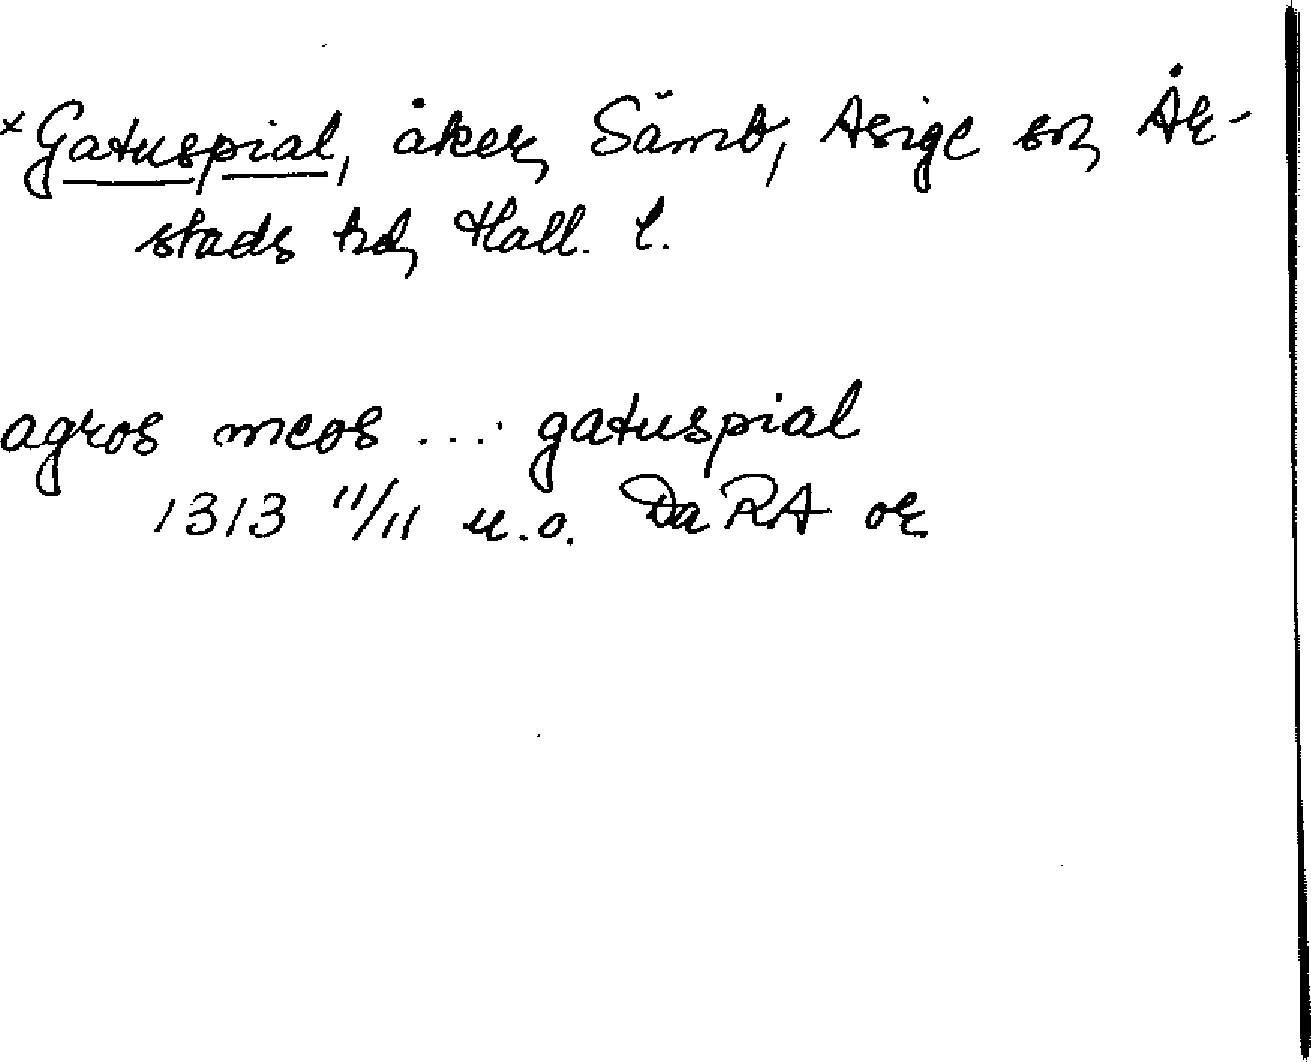 ×Gatuspial, åker, Sämb, Asige sn, År-
stads hd, Hall. l.
agros meos .... gatuspial
1313 11/11 u.o. DaRA or